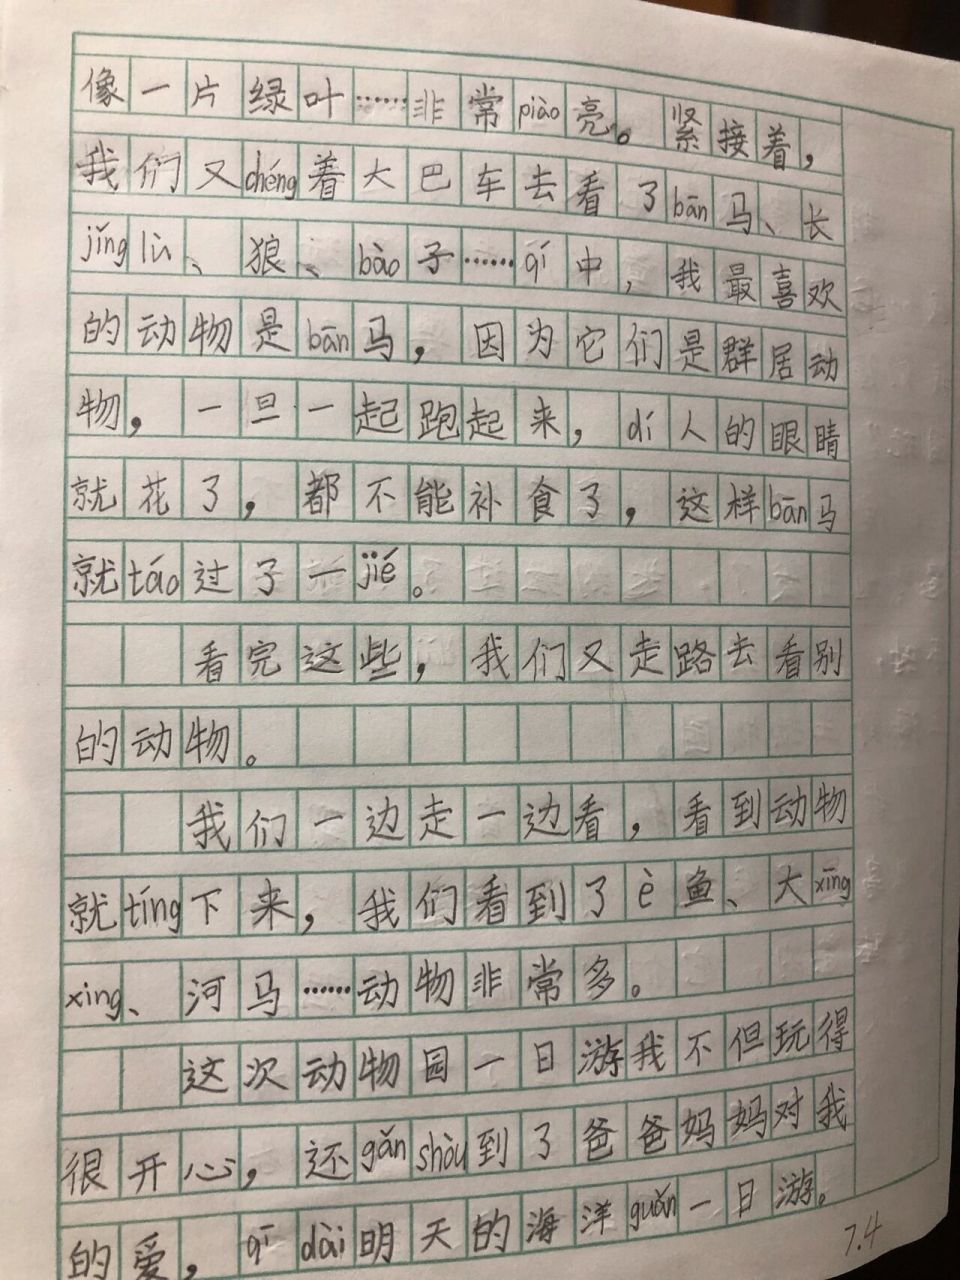 像一片绿叶……非常piào亮。紧接着，
我们又chéng着大巴车去看了bān马、长
jǐng lù、狼、bào子……qí中，我最喜欢
的动物是bān马，因为它们是群居动
物，一旦一起跑起来，dí人的眼睛
就花了，都不能补食了，这样bān马
就táo过子一jié。
看完这些，我们又走路去看别
的动物。
我们一边走一边看，看到动物
就tíng下来，我们看到了è鱼、大xīng
xing、河马……动物非常多。
这次动物园一日游我不但玩得
很开心，还gǎn shòu到了爸爸妈妈对我
的爱，qī dài明天的海洋guǎn一日游。
7.4